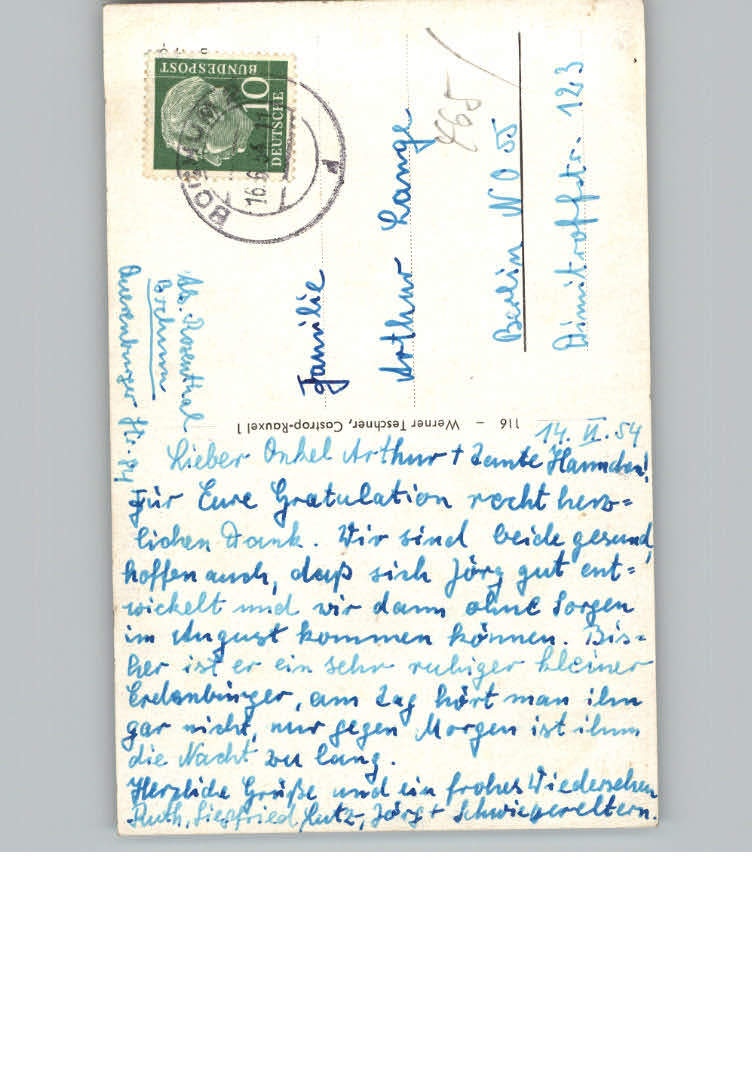 DEUTSCHE
BUNDESPOST
10
BOCHUM
16.6.
465
Familie
Arthur Lange
Berlin NO 55
Dimitroffstr. 123
Abs. Rosenthal
Bochum
Querenburger Str. 94
116 – Werner Teschner, Castrop-Rauxel 1
14. II. 54
Lieber Onkel Arthur + Tante Hannchen!
Für Eure Gratulation recht herz=
lichen Dank. Wir sind beide gesund,
hoffen auch, daß sich Jörg gut ent=
wickelt und wir dann ohne Sorgen
im August kommen können. Bis=
her ist er ein sehr ruhiger kleiner
Erdenbürger, am Tag hört man ihn
gar nicht, nur gegen Morgen ist ihm
die Nacht zu lang.
Herzliche Grüße und ein frohes Wiedersehen
Ruth, Siegfried, Lutz, Jörg + Schwiegereltern.